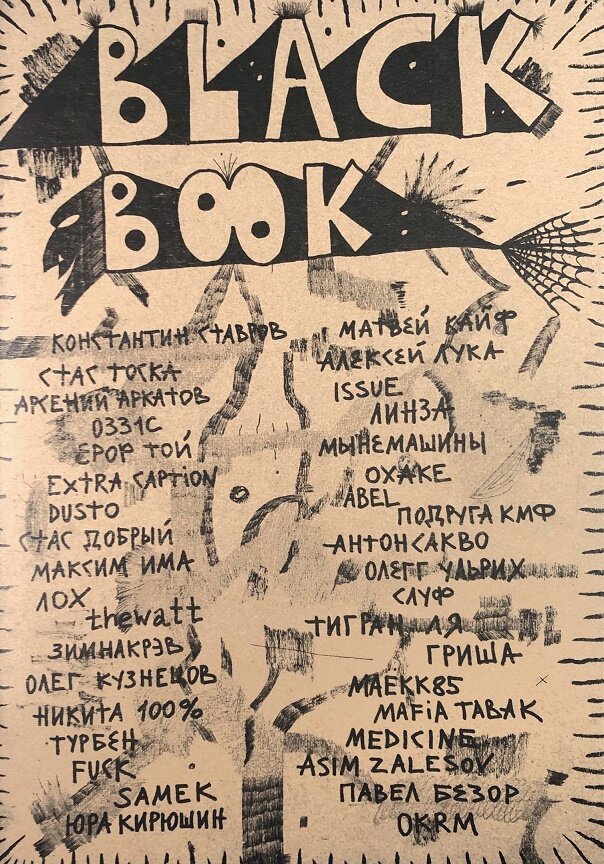 BLACK
BOOK
КОНСТАНТИН СТАВРОВ
СТАС ТОСКА
АРСЕНИЙ АРКАТОВ
0331C
ЕРОР ТОЙ
EXTRA CAPTION
DUSTO
СТАС ДОБРЫЙ
МАКСИМ ИМА
ЛОХ
thewatt
ЗИМНАКРЭВ
ОЛЕГ КУЗНЕЦОВ
НИКИТА 100%
ТУРБЕН
FUCK
SAMEK
ЮРА КИРЮШИН
МАТВЕЙ КАЙФ
АЛЕКСЕЙ ЛУКА
ISSUE
ЛИНЗА
МЫНЕМАШИНЫ
ОХАКЕ
ABEL
ПОДРУГА КМФ
АНТОН САКВО
ОЛЕГГ УЛЬРИХ
СЛУФ
ТИГРАН ЛЯ
ГРИША
MAEKK85
MAFiA TABAK
MEDICINE
ASIM ZALESOV
ПАВЕЛ БЕЗОР
OKRM